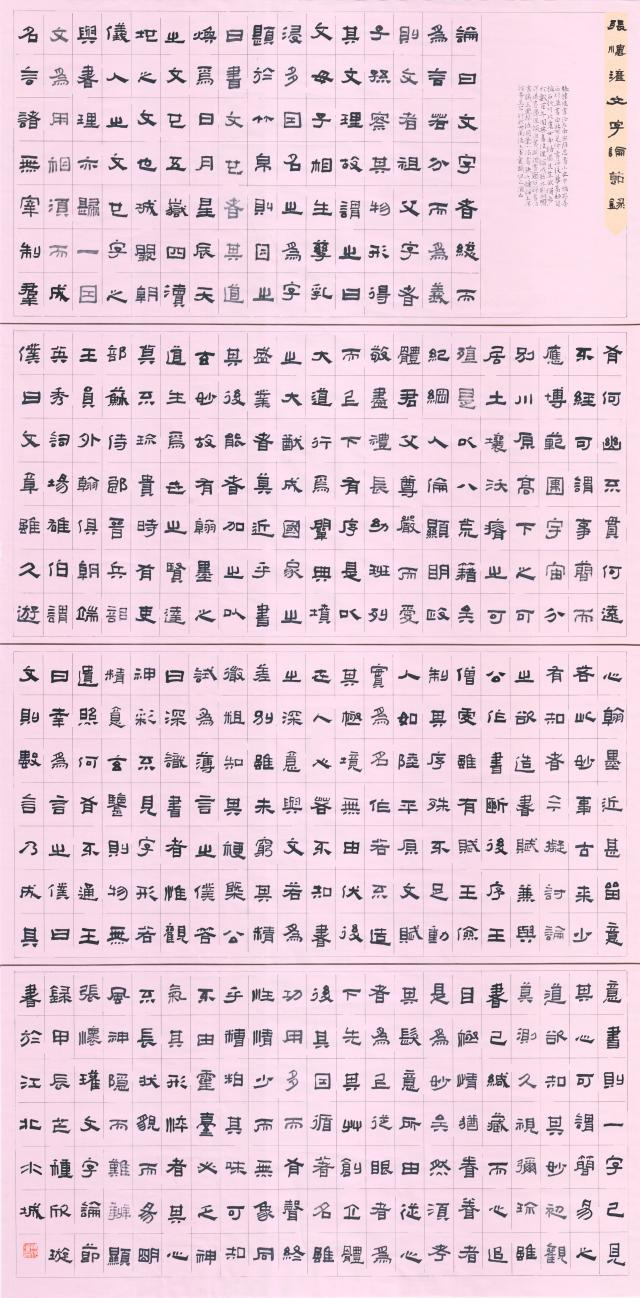 張懷瓘文字論節錄
論曰文字者總而
為言若分而為義
則文者祖父字者
子孫察其物形得
其文理故謂之曰
文母子相生孳乳
浸多因名之為字
題於竹帛則目之
曰書文也者其道
煥焉日月星辰天
之文也五嶽四瀆
地之文也城闕朝
儀人之文也字之
與書理亦歸一因
文為用相須而成
名言諸無宰制群
有何幽不貫何遠
不經可謂事齊而
應博範圍宇宙分
別川原高下之可
居土壤沃瘠之可
殖是以八荒籍矣
紀綱人倫顯明政
體君父尊嚴而愛
敬盡禮長幼班列
而上下有序是以
大道行焉闡典墳
之大猷成國家之
盛業者莫近乎書
其後能者加之以
玄妙故有翰墨之
道生焉世之賢達
莫不珍貴時有吏
部蘇侍郎晉兵部
王員外翰俱朝端
英秀詞場雄伯謂
僕曰文章雖久遊
心翰墨近甚留意
若此妙事古來少
有知者今擬討論
之欲造書賦兼與
公作書斷後序王
僧虔雖有賦王儉
制其序殊不足動
人如陸平原文賦
實為名作若不造
其極境無由伏後
世人心若不知書
之深意與文若為
差別雖未窮其精
微粗知其梗槩公
試為薄言之僕答
曰深識書者惟觀
神彩不見字形若
精意玄鑒則物無
遺照何有不通王
曰幸為言之僕曰
文則數言乃成其
意書則一字已見
其心可謂簡易之
道欲知其妙初觀
莫測久視彌珍雖
書已緘藏而心追
目極情猶眷眷者
是為妙矣然須考
其發意所由從心
者為上從眼者為
下先其草創立體
後其因循著名雖
功用多而有聲終
性情少而無象同
乎糟粕其味可知
不由靈臺必乏神
氣其形悴者其心
不長狀貌而易明
風神隱而難辨顯
張懷瓘文字論節
錄甲辰芒種欣璇
書於江北水城